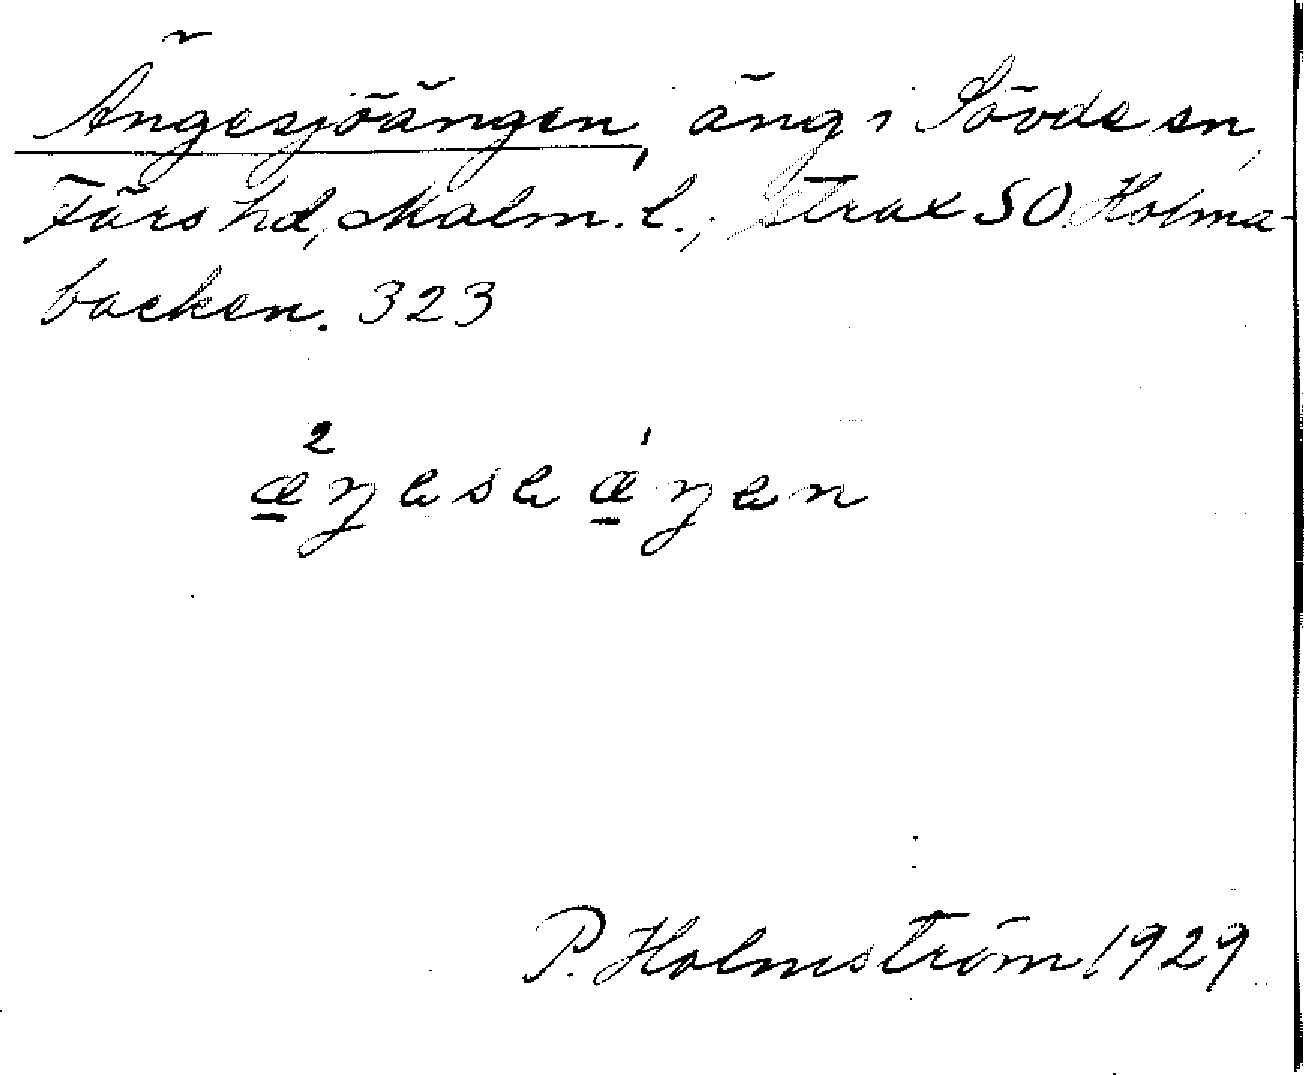 Ängesjöängen, äng i Sövde sn,
Färs hd, Malm. l.; strax SO Holma-
backen. 323
æ̱²ŋesea̱̱e̍ŋen
P. Holmström 1929